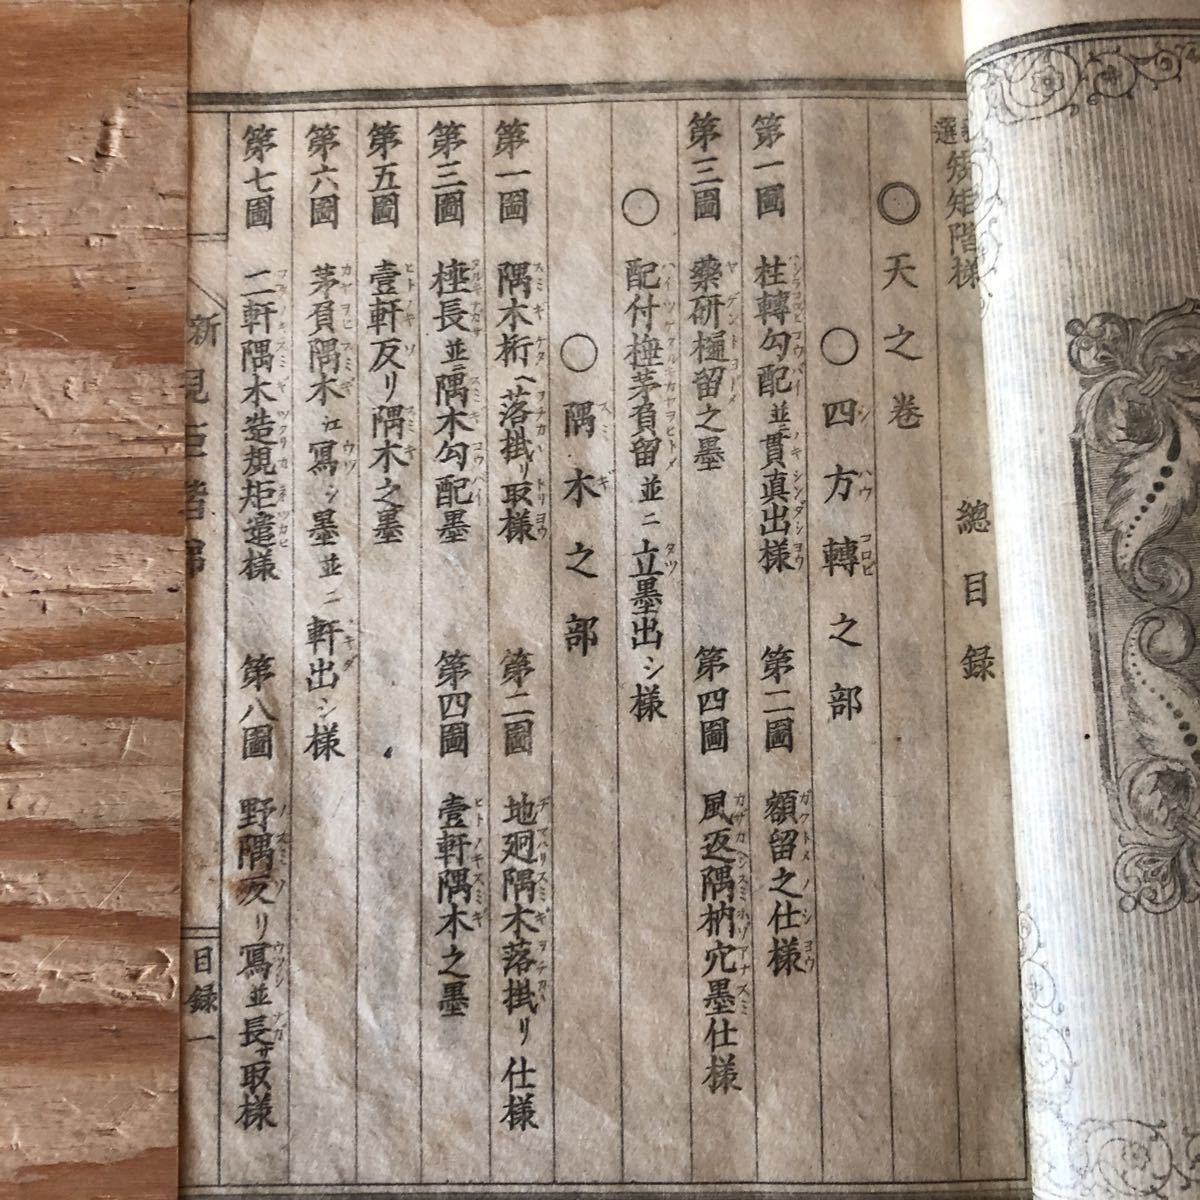 矩階様 總目録
◎天之巻
○四方轉之部
第一圖 柱轉勾配並ニ貫真出様 第二圖 額留之仕様
第三圖 藥研樋留之墨 第四圖 風返隅枘穴墨仕様
○配付棰茅負留並ニ立墨出シ様
○隅木之部
第一圖 隅木桁ヘ落掛リ取様 第二圖 地廻隅木落掛リ仕様
第三圖 棰長並ニ隅木勾配墨 第四圖 壹軒隅木之墨
第五圖 壹軒反リ隅木之墨
第六圖 茅負隅木江寫シ墨並ニ軒出シ様
第七圖 二軒隅木造規矩遣様 第八圖 野隅反リ寫並長サ取様
新 目録一